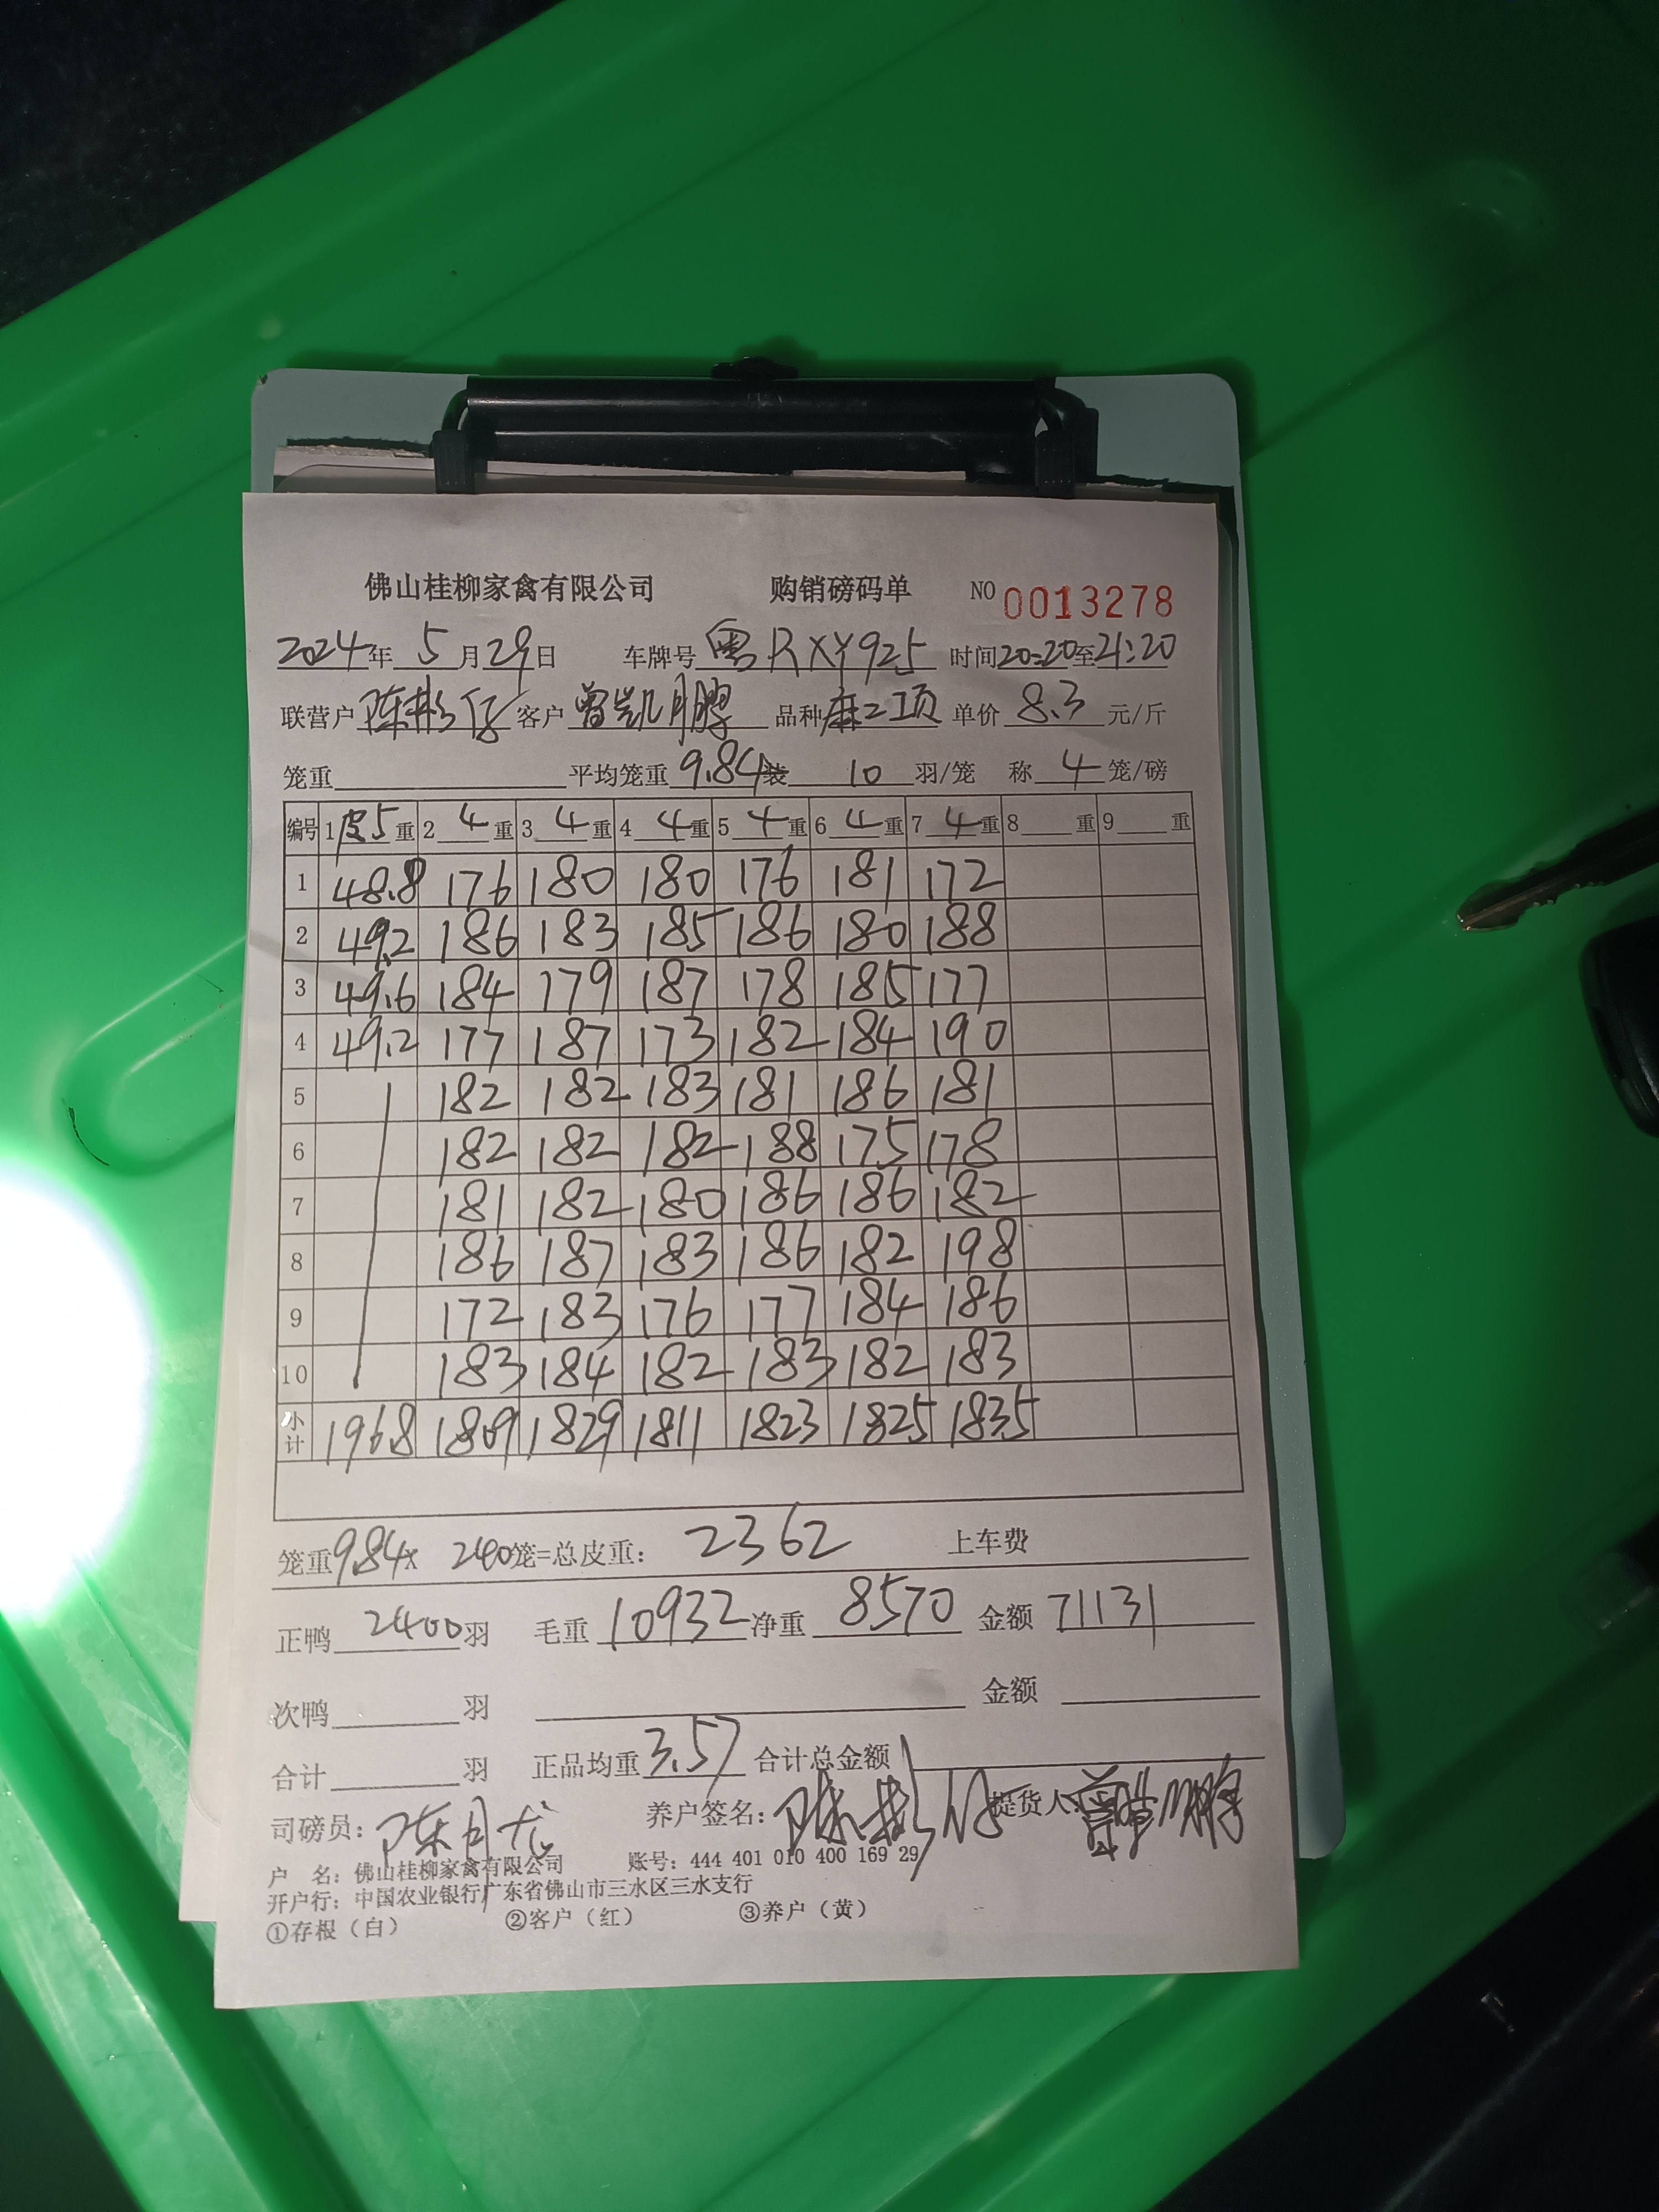 佛山桂柳家禽有限公司 购销磅码单 NO 0013278
2024年 5 月 29 日 车牌号 粤RXY925 时间 20:20 至 21:20
联营户 陈彬仔 客户 曾凯鹏 品种 麻二项 单价 8.3 元/斤
笼重 平均笼重 9.84 装 10 羽/笼 称 4 笼/磅
编号 1 皮5 重 2 4 重 3 4 重 4 4 重 5 4 重 6 4 重 7 4 重 8 重 9 重
1 48.8 176 180 180 176 181 172
2 49.2 186 183 185 186 180 188
3 49.6 184 179 187 178 185 177
4 49.2 177 187 173 182 184 190
5 182 182 183 181 186 181
6 182 182 182 188 175 178
7 181 182 180 186 186 182
8 186 187 183 186 182 198
9 172 183 176 177 184 186
10 183 184 182 183 182 183
小计 196.8 1809 1829 1811 1823 1825 1835
笼重 9.84 × 240 笼=总皮重: 2362 上车费
正鸭 2400 羽 毛重 10932 净重 8570 金额 71131
次鸭 羽 金额
合计 羽 正品均重 3.57 合计总金额
司磅员: 陈月龙 养户签名: 陈彬仔 提货人: 曾凯鹏
户 名: 佛山桂柳家禽有限公司 账号: 444 401 010 400 169 29
开户行: 中国农业银行广东省佛山市三水区三水支行
①存根（白） ②客户（红） ③养户（黄）